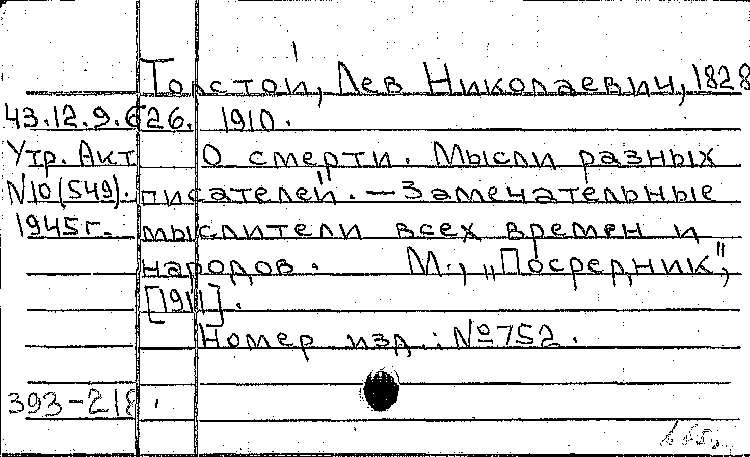 Толстой, Лев Николаевич, 1828
43.12.9.626. 1910.
Утр. Акт О смерти. Мысли разных
N10(549). писателей. — Замечательные
1945г. мыслители всех времен и
народов. М., „Посредник",
[1911].
Номер изд.: №752.
393-218.